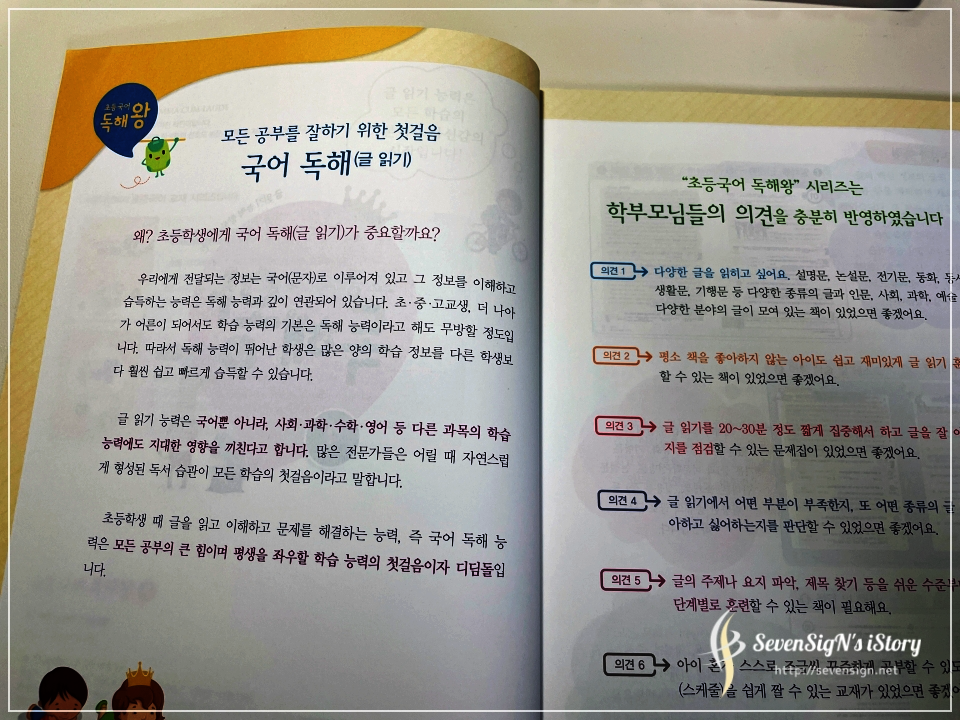 초등국어
독해왕
모든 공부를 잘하기 위한 첫걸음
국어 독해(글 읽기)
왜? 초등학생에게 국어 독해(글 읽기)가 중요할까요?
우리에게 전달되는 정보는 국어(문자)로 이루어져 있고 그 정보를 이해하고
습득하는 능력은 독해 능력과 깊이 연관되어 있습니다. 초·중·고교생, 더 나아
가 어른이 되어서도 학습 능력의 기본은 독해 능력이라고 해도 무방할 정도입
니다. 따라서 독해 능력이 뛰어난 학생은 많은 양의 학습 정보를 다른 학생보
다 훨씬 쉽고 빠르게 습득할 수 있습니다.
글 읽기 능력은 국어뿐 아니라, 사회·과학·수학·영어 등 다른 과목의 학습
능력에도 지대한 영향을 끼친다고 합니다. 많은 전문가들은 어릴 때 자연스럽
게 형성된 독서 습관이 모든 학습의 첫걸음이라고 말합니다.
초등학생 때 글을 읽고 이해하고 문제를 해결하는 능력, 즉 국어 독해 능
력은 모든 공부의 큰 힘이며 평생을 좌우할 학습 능력의 첫걸음이자 디딤돌입
니다.
“초등국어 독해왕” 시리즈는
학부모님들의 의견을 충분히 반영하였습니다
의견 1 다양한 글을 읽히고 싶어요. 설명문, 논설문, 전기문, 동화, 동시
생활문, 기행문 등 다양한 종류의 글과 인문, 사회, 과학, 예술
다양한 분야의 글이 모여 있는 책이 있었으면 좋겠어요.
의견 2 평소 책을 좋아하지 않는 아이도 쉽고 재미있게 글 읽기
할 수 있는 책이 있었으면 좋겠어요.
의견 3 글 읽기를 20~30분 정도 짧게 집중해서 하고 글을 잘
지를 점검할 수 있는 문제집이 있었으면 좋겠어요.
의견 4 글 읽기에서 어떤 부분이 부족한지, 또 어떤 종류의 글
아하고 싫어하는지를 판단할 수 있었으면 좋겠어요.
의견 5 글의 주제나 요지 파악, 제목 찾기 등을 쉬운 수준부
단계별로 훈련할 수 있는 책이 필요해요.
의견 6 아이 혼자 스스로 조금씩 꾸준하게 공부할 수 있
(스케줄)을 쉽게 짤 수 있는 교재가 있었으면 좋겠
SevenSigN's iStory
http://sevensign.net